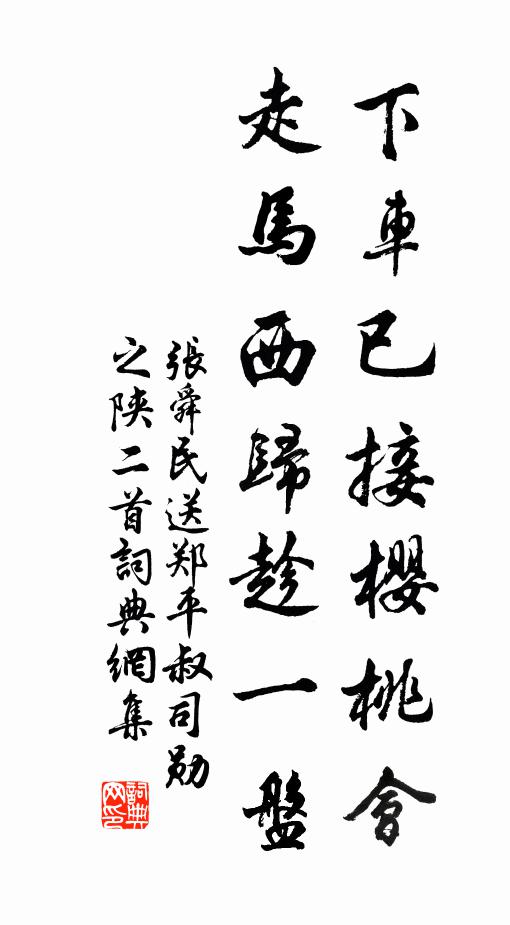 下車已接櫻桃會
走馬西歸趁一盤
張舜民送郑平叔司勋
之陝二首詞典網集
詞典网印